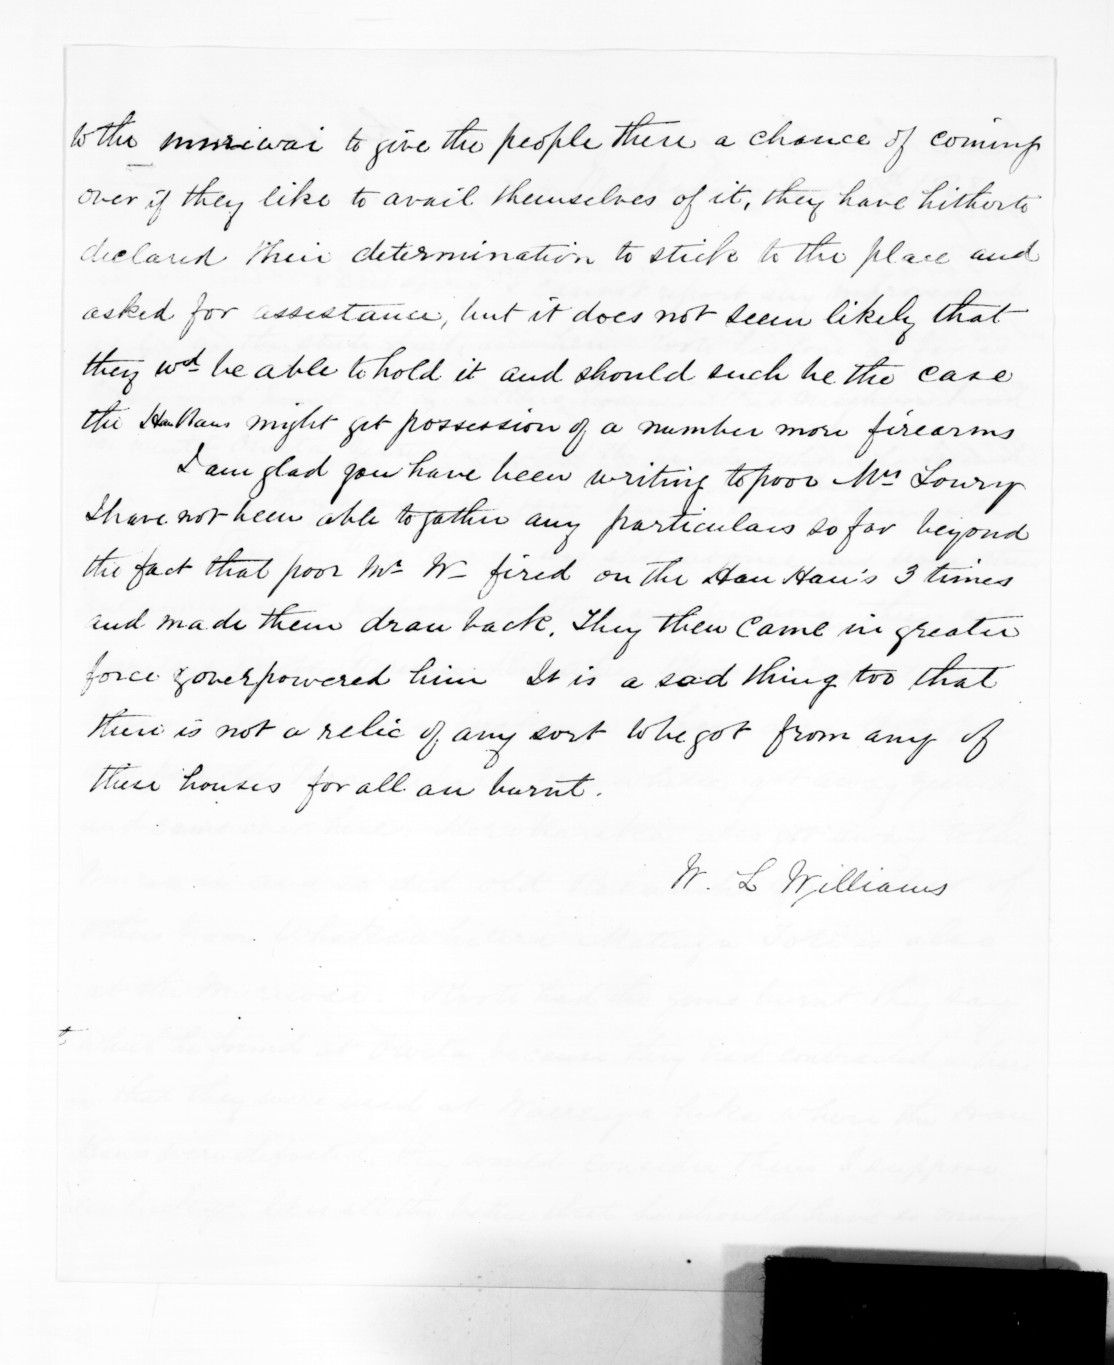 to the muriwai to give the people there a chance of coming
over if they like to avail themselves of it, they have hitherto
declared their determination to stick to the place and
asked for assistance, but it does not seem likely that
they wd be able to hold it and should such be the case
the Hau Haus might get possession of a number more firearms
I am glad you have been writing to poor Mrs Lowry
I have not been able to gather any particulars so far beyond
the fact that poor Mr W- fired on the Hau Hau's 3 times
and made them draw back. They then came in greater
force & overpowered him It is a sad thing too that
there is not a relic of any sort to be got from any of
these houses for all are burnt.
W. L Williams